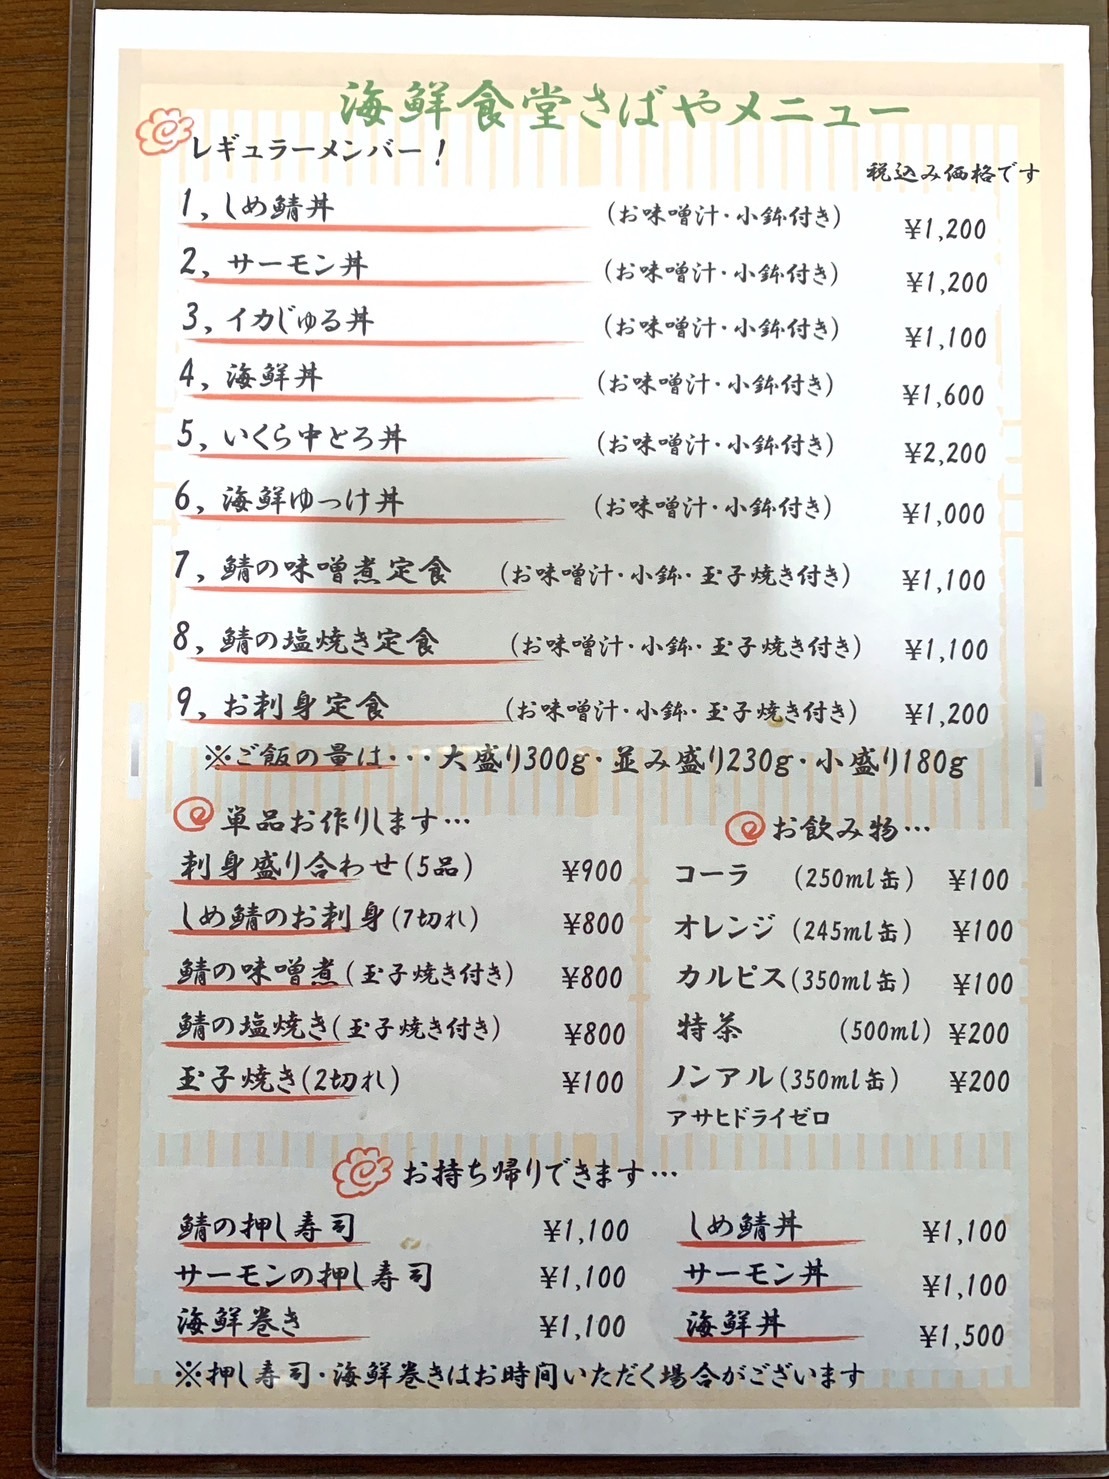 海鮮食堂さばやメニュー
レギュラーメンバー！
税込み価格です
1, しめ鯖丼 (お味噌汁・小鉢付き) ¥1,200
2, サーモン丼 (お味噌汁・小鉢付き) ¥1,200
3, イカじゅる丼 (お味噌汁・小鉢付き) ¥1,100
4, 海鮮丼 (お味噌汁・小鉢付き) ¥1,600
5, いくら中とろ丼 (お味噌汁・小鉢付き) ¥2,200
6, 海鮮ゆっけ丼 (お味噌汁・小鉢付き) ¥1,000
7, 鯖の味噌煮定食 (お味噌汁・小鉢・玉子焼き付き) ¥1,100
8, 鯖の塩焼き定食 (お味噌汁・小鉢・玉子焼き付き) ¥1,100
9, お刺身定食 (お味噌汁・小鉢・玉子焼き付き) ¥1,200
※ご飯の量は・・・大盛り300g・並み盛り230g・小盛り180g
単品お作りします…
刺身盛り合わせ(5品) ¥900
しめ鯖のお刺身(7切れ) ¥800
鯖の味噌煮(玉子焼き付き) ¥800
鯖の塩焼き(玉子焼き付き) ¥800
玉子焼き(2切れ) ¥100
お飲み物…
コーラ (250ml缶) ¥100
オレンジ (245ml缶) ¥100
カルピス(350ml缶) ¥100
特茶 (500ml) ¥200
ノンアル(350ml缶) ¥200
アサヒドライゼロ
お持ち帰りできます…
鯖の押し寿司 ¥1,100
サーモンの押し寿司 ¥1,100
海鮮巻き ¥1,100
しめ鯖丼 ¥1,100
サーモン丼 ¥1,100
海鮮丼 ¥1,500
※押し寿司・海鮮巻きはお時間いただく場合がございます